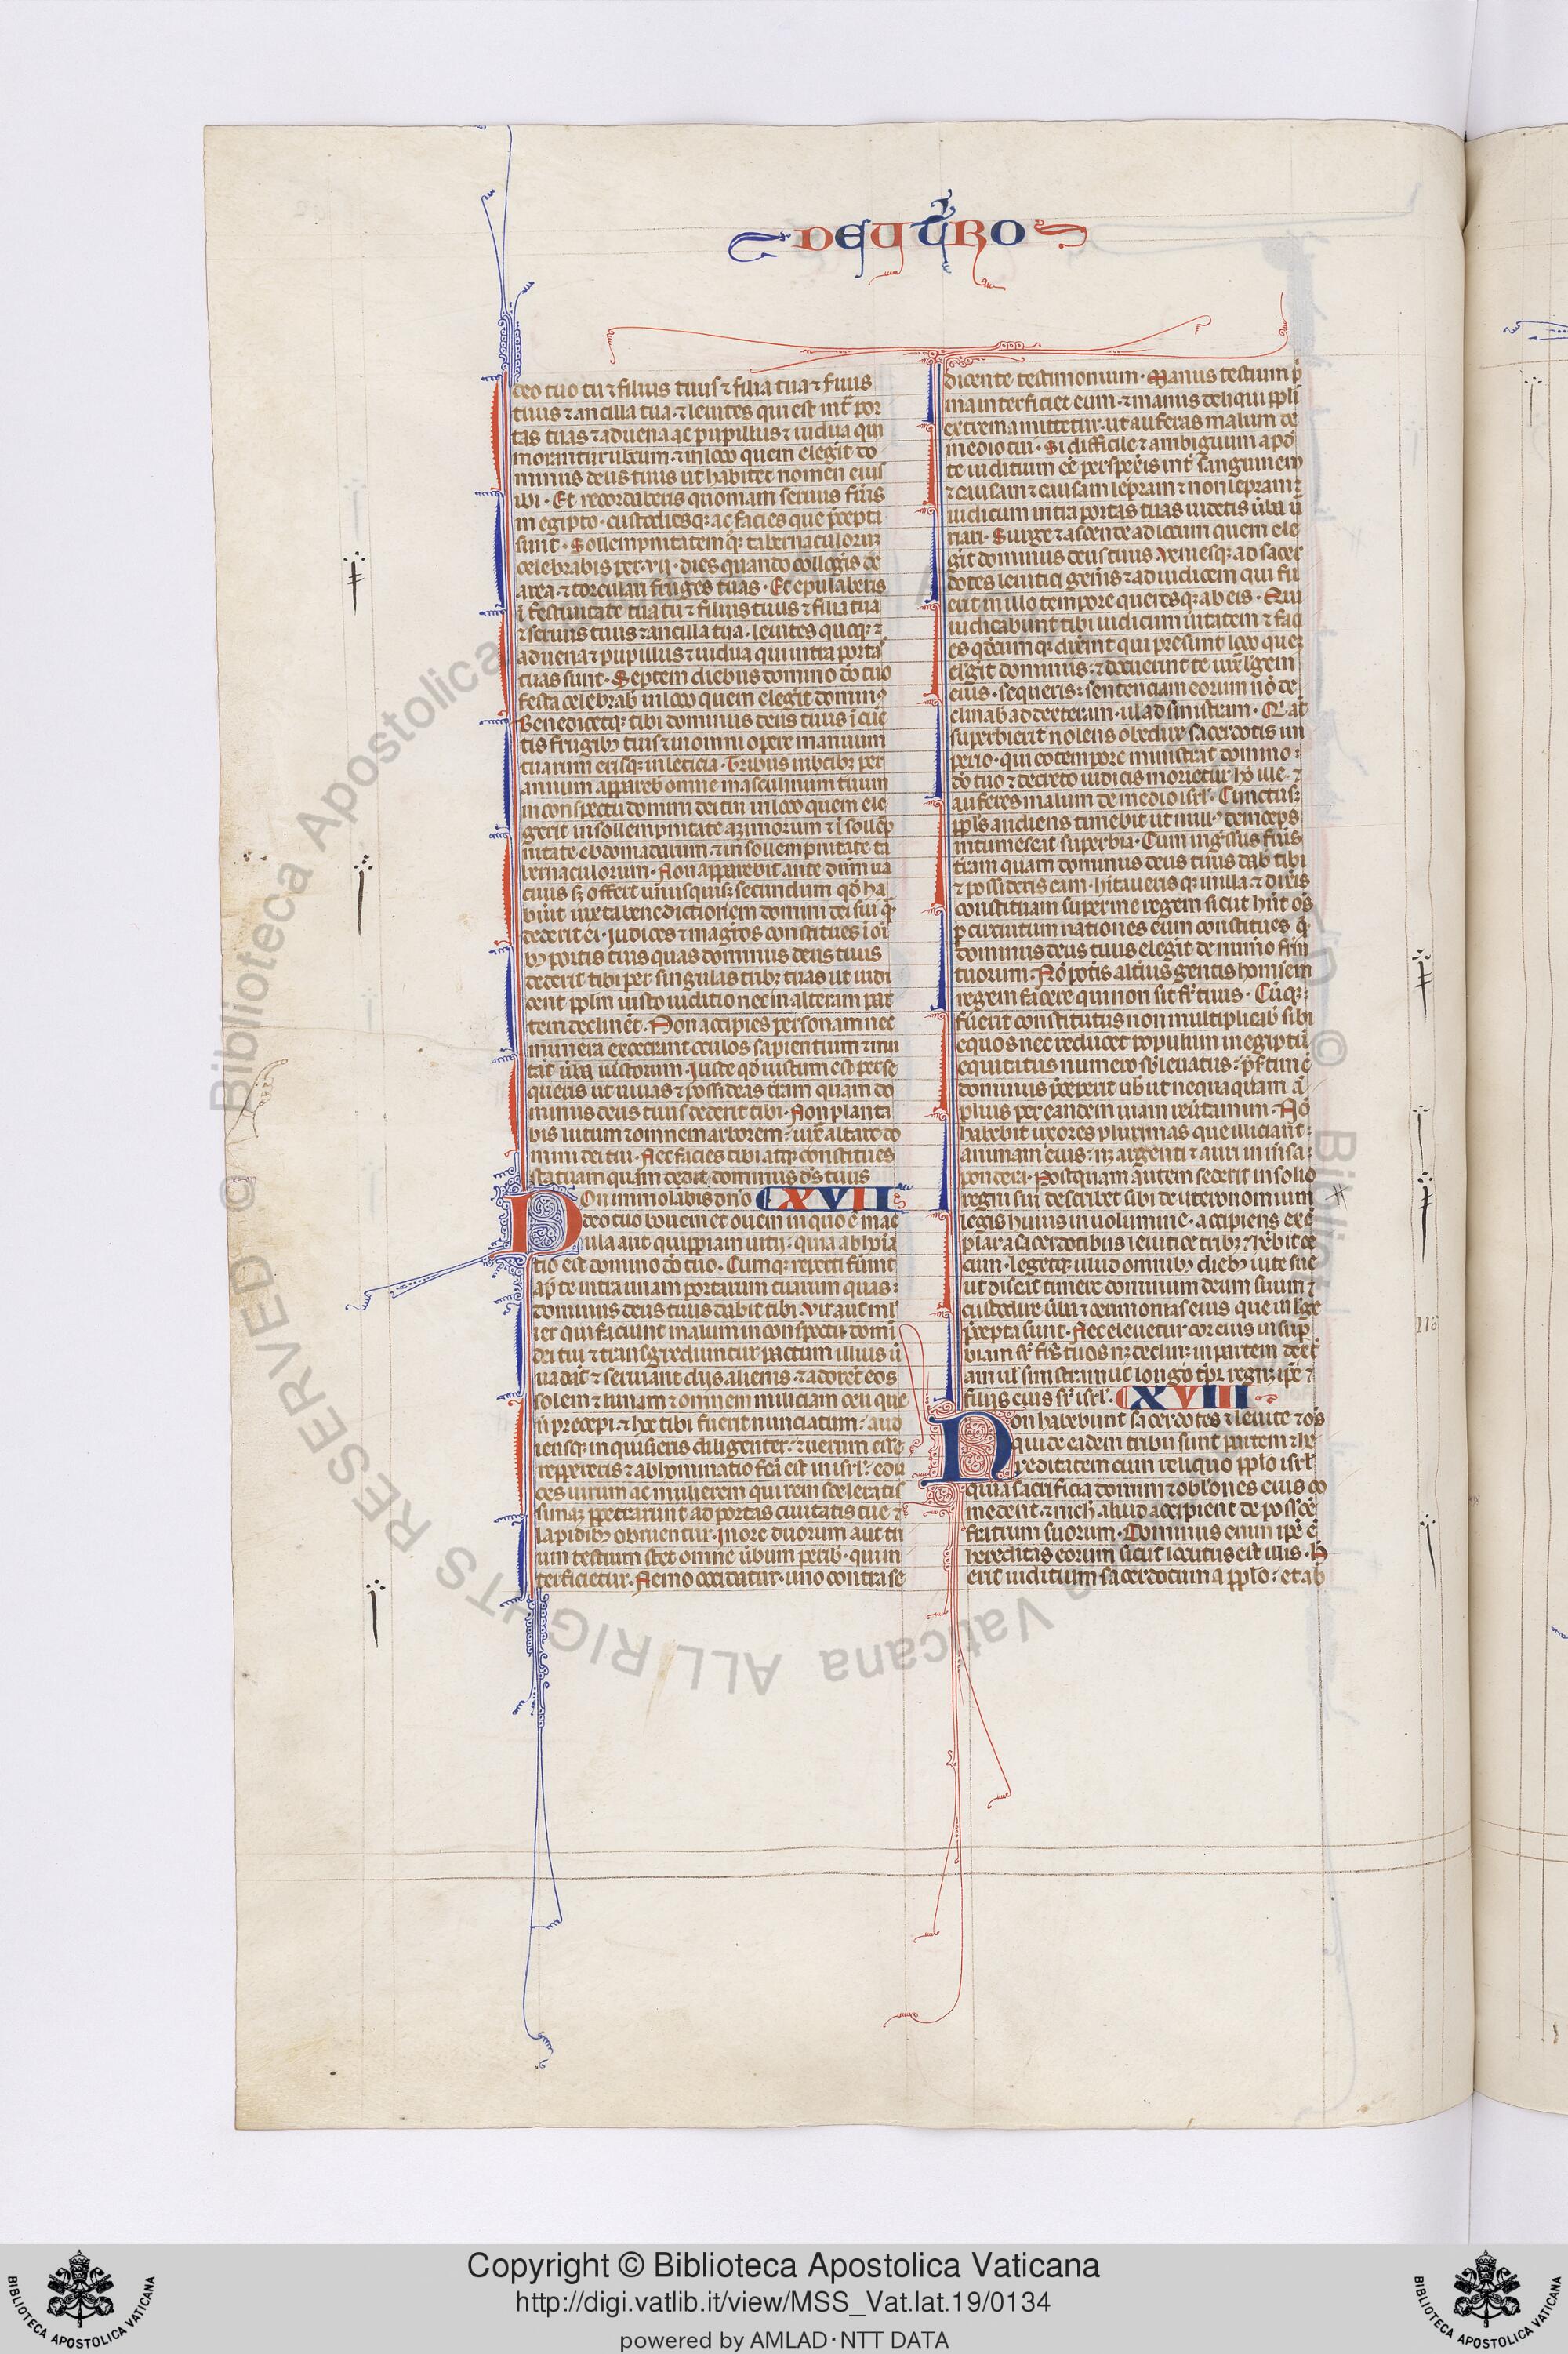 DEUTRO
deo tuo tu ⁊ filius tuus ⁊ filia tua ⁊ ſuus
tuus ⁊ ancilla tua ⁊ leuites qui est int̄ por
tas tuas ⁊ aduena ac pupillus ⁊ uidua qui
morantur ubcum · ⁊ in loco quem elegit do
minus deus tuus ut habitet nomen eius
ibi · Et recordaberis quoniam seruus fu̅is
in egipto · custodiesq; ac facies que p̅cepta
sunt · Sollempnitatem q; tabernaculorum
celebrabis per · vii · dies quando collegis de
area · ⁊ torculari fruges tuas · Et epulaberis
i̅ festiuitate tua tu ⁊ filius tuus ⁊ filia tua
⁊ seruus tuus ⁊ ancilla tua · leuites quoq; ⁊
aduena ⁊ pupillus ⁊ uidua qui intra portas
tuas sunt · Septem diebus domino do̅ tuo
festa celebrab̅ in loco quem elegit dominꝰ
Benedicetq; tibi dominus deus tuus i̅ cu̅c
tis frugibꝫ tuis ⁊ in omni opere manuum
tuarum erisq; in leticia · Tribus uicibꝫ per
annum appareb̅ omne masculinum tuum
in conspectu domini dei tui in loco quem ele
gerit in sollempnitate azimorum ⁊ i̅ sollep̅
nitate ebdomadarum · ⁊ in sollempnitate ta
bernaculorum · Non apparebit ante dnm ua
cuus sꝫ offert unusquisq; secundum qd̅ ha
buit iuxta benedictionem domini dei sui q̅
dederit ei · Iudices ⁊ magr̅os constitues i̅ oi̅
bꝫ portis tuis quas dominus deus tuus
dederit tibi per singulas tribꝫ tuas ut iudi
cent pplm iusto iuditio nec in alteram par
tem declinēt · Non accipies personam nec
munera execerant oculos sapientium ⁊ mu
tāt u̅ba iustorum · Iuste qd̅ iustum est perse
queris ut uiuas ⁊ possideas tr̅am quam do
minus deus tuus dederit tibi · Non planta
bis lucum ⁊ omnem arborem · iux̅ altare do
mini dei tui · Nec facies tibi atq; constitues
statuam quam oedit dominus ds̅ tuus
Non immolabis dn̅o CXVII
deo tuo bouem et ouem in quo ē mac
ula aut quippiam uitij · quia abhoi̅a
tio est domino do̅ tuo · Cumq; reperti fu̅int
ap̅ te intra unam portarum tuarum quas
dominus deus tuus dabit tibi · vir aut mul
ier qui faciunt malum in conspectu domi̅
dei tui ⁊ transgrediuntur pactum illius u̅
uadāt ⁊ seruiant dijs alienis · ⁊ adorēt eos
solem ⁊ lunam ⁊ omnem miliciam celi que
n̅ precepi · ⁊ hoc tibi fuerit nunciatum · aud
iensq; inquisieris diligenter · ⁊ uerum esse
reppereris ⁊ abhominatio fc̅a est in isrl̅ · edu
ces uirum ac mulierem qui rem sceleratis
simaꝫ ppetrarunt ad portas ciuitatis tue ⁊
lapidibꝫ obruentur · In ore duorum aut tri
um testium stet omne u̅bum perib̅ · qui in
terficietur · Nemo occidatur · uno contra se
dicente testimonium · Manus testium p̅
ma interficiet eum · ⁊ manus reliqui ppli
extrema mittetur · ut auferas malum de
medio tui · Si difficile ⁊ ambiguum apd̅
te iuditium eē perspex̅is int̄ sanguinem
⁊ causam ⁊ causam lepram ⁊ non lepram ⁊
iudicum intra portas tuas uidetis u̅ba u̅
riari · Surge ⁊ ascende ad locum quem ele
git dominus deus tuus · veniesq; ad sacer
dotes leuitici gen̅is ⁊ ad iudicem qui fu
erit in illo tempore queresq; ab eis · Qui
iudicabunt tibi iudicium u̅itatem ⁊ faci
es qd̅cumq; dix̅int qui presunt loco queꝫ
elegit dominus · ⁊ docuerint te iux̅ legem
eius · sequeris sentenciam eorum nō de
clinab̅ ad dexteram · ul̅ ad sinistram · Q̅ at̅
superbierit nolens obedire sacerdotis im
perio · qui eo tempore ministrat domino
do̅ tuo ⁊ decreto iudicis morietur ho̅ ille · ⁊
auferes malum de medio isrl̅ · Cunctusq;
ppls audiens timebit ut null̅ꝰ deinceps
intumescat superbia · Cum ing̅ssus fu̅is
tr̅am quam dominus deus tuus dab̅ tibi
⁊ possideris eam · hitauerisq; in illa · ⁊ dix̅is
constituam super me regem sicut hn̅t oēs
p̲ circuitum nationes eum constitues q̅
dominus deus tuus elegit de num̅o fr̅m
tuorum · Nō potis alt̅ius gentis hominem
regem facere qui non sit fr̅ tuus · Cu̅q;
fuerit constitutus non multiplicab̅ sibi
equos nec reducet populum in egiptu̅
equitatus numero s̅bleuatus · p̅sertim c̅
dominus p̅ceperit ub̅ ut nequaquam a̅
plius per eandem uiam reu̅tamini · Nō
habebit uxores plurimas que illiciant
animam eius · nꝫ argenti ⁊ auri in̅ısa
pondera · Postquam autem sederit in solio
regni sui describet sibi deuteronomium
legis huius in uolumine · accipiens exē
plar a sacerdotibus leuitice tribꝫ · ⁊ hēbit se
cum · legetq; illud omnibꝫ diebꝫ uite sue
ut discat timere dominum deum suum ⁊
custodire u̅ba ⁊ cerimonias eius que in lege
p̅cepta sunt · Nec eleuetur cor eius in sup̲
biam sr̅ fr̅s tuos nꝫ declinꝫ in partem dext̅
am ul̅ sinistr̅ · ut longo tp̅r regnꝫ ip̅e ⁊
filius eius sr̅ isrl̅ · CXVIII
Non habebunt sacerdotes ⁊ leuite ⁊ oēs
qui de eadem tribu sunt partem ⁊ he
reditatem cum reliquo pplo isrl̅
quia sacrificia domini ⁊ obl̅ones eius co
medent · ⁊ nich̅ aliud accipient de posse̅
fratrum suorum · Dominus enim ip̅e ē
hereditas eorum sicut locutus est illis · H̅
erit iuditium sacerdotum a pplo · et ab
Copyright © Biblioteca Apostolica Vaticana
http://digi.vatlib.it/view/MSS_Vat.lat.19/0134
powered by AMLAD·NTT DATA
BIBLIOTECA APOSTOLICA VATICANA
BIBLIOTECA APOSTOLICA VATICANA
© Biblioteca Apostolica Vaticana ALL RIGHTS RESERVED